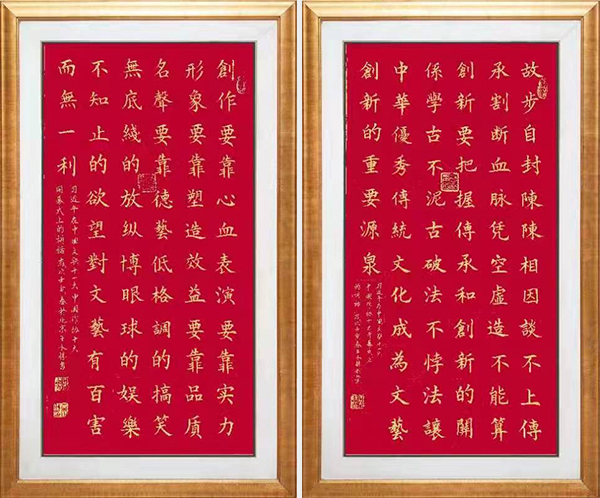 創作要靠心血表演要靠實力
形象要靠塑造效益要靠品質
名聲要靠德藝低格調的搞笑
無底綫的放纵博眼球的娱樂
不知止的欲望對文藝有百害
而無一利
习近平在中国文联十一大中国作协十大
開幕式上的講話
故步自封陳陳相因談不上傳
承割断血脉凭空虚造不能算
創新要把握傳承和創新的關
係學古不泥古破法不悖法讓
中華優秀傳統文化成為文藝
創新的重要源泉